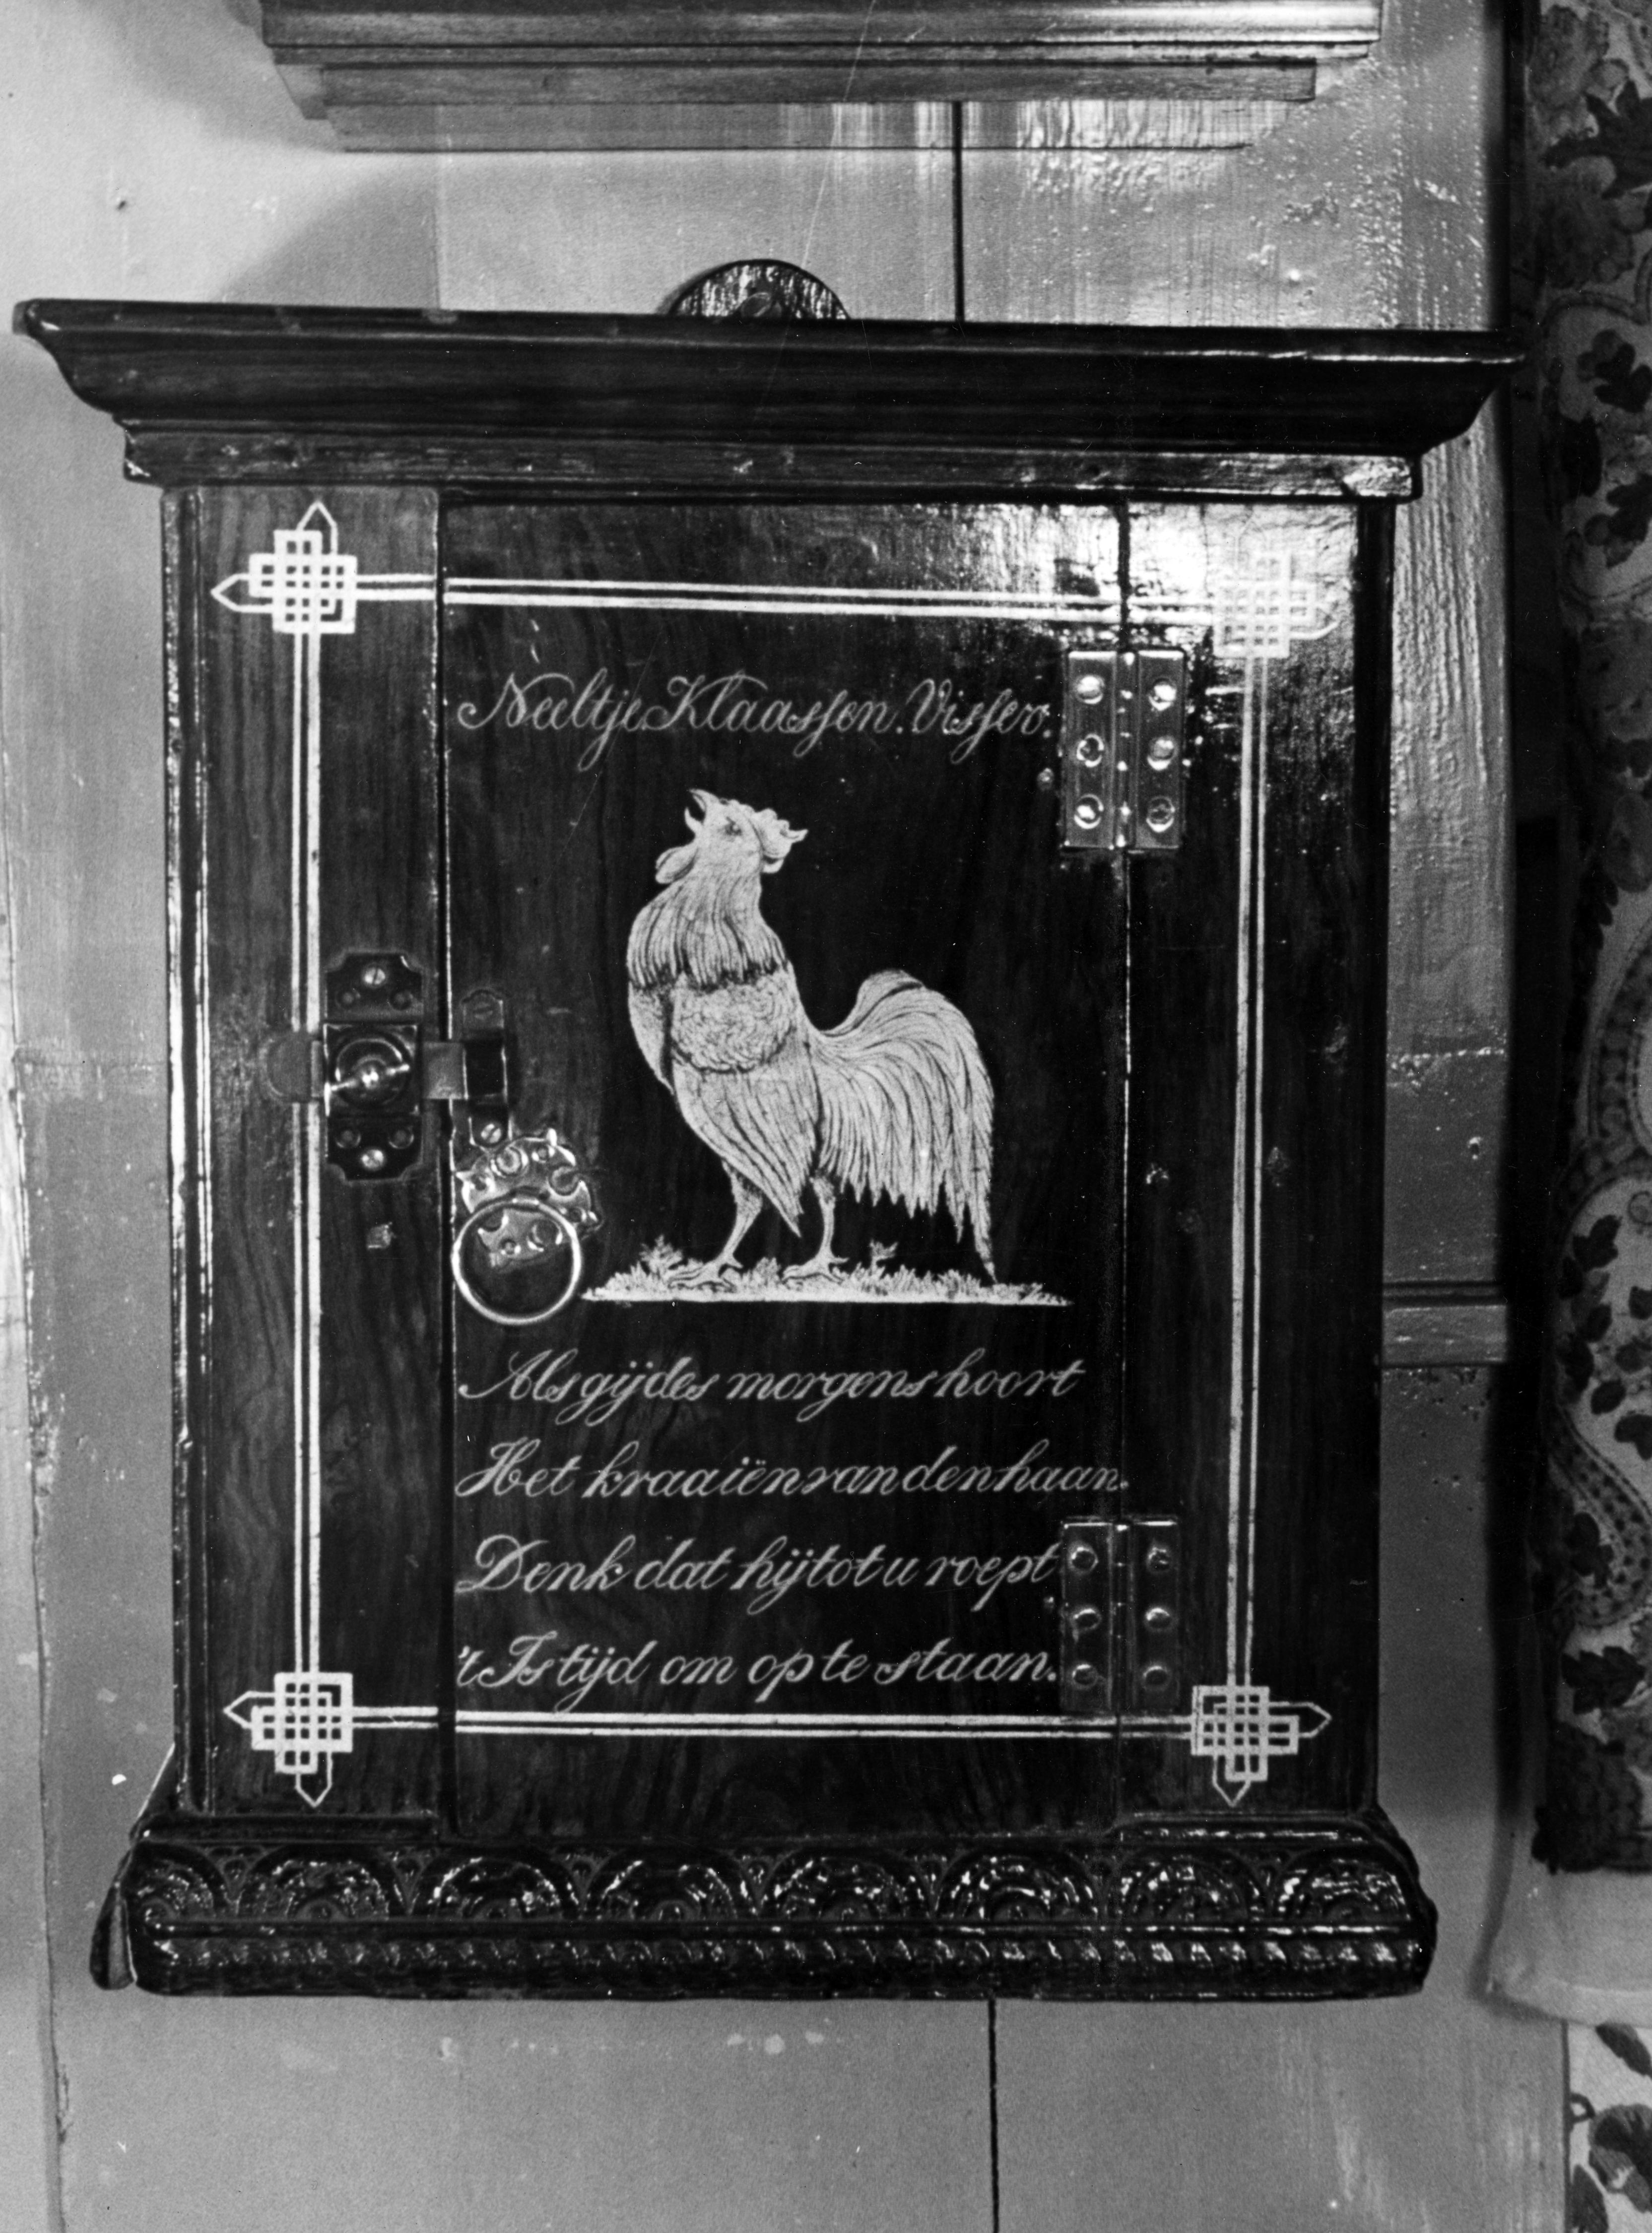 Neeltje Klaassen. Visser.
Als gij des morgens hoort
Het kraaiën van den haan.
Denk dat hij tot u roept
't Is tijd om op te staan.